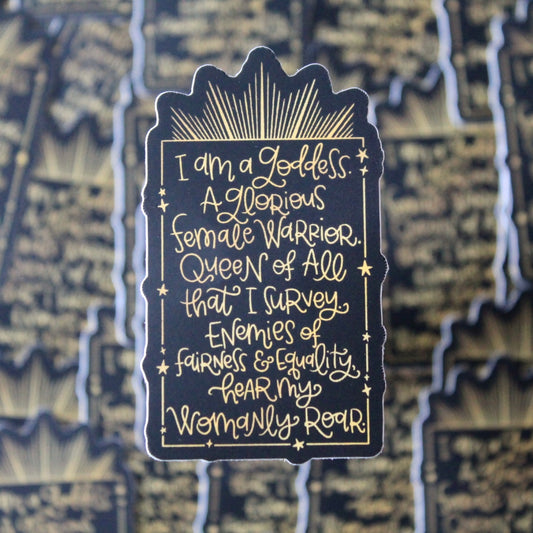 I am a Goddess.
A Glorious
female Warrior.
Queen of All
that I Survey.
Enemies of
fairness & Equality,
hear my
Womanly Roar.